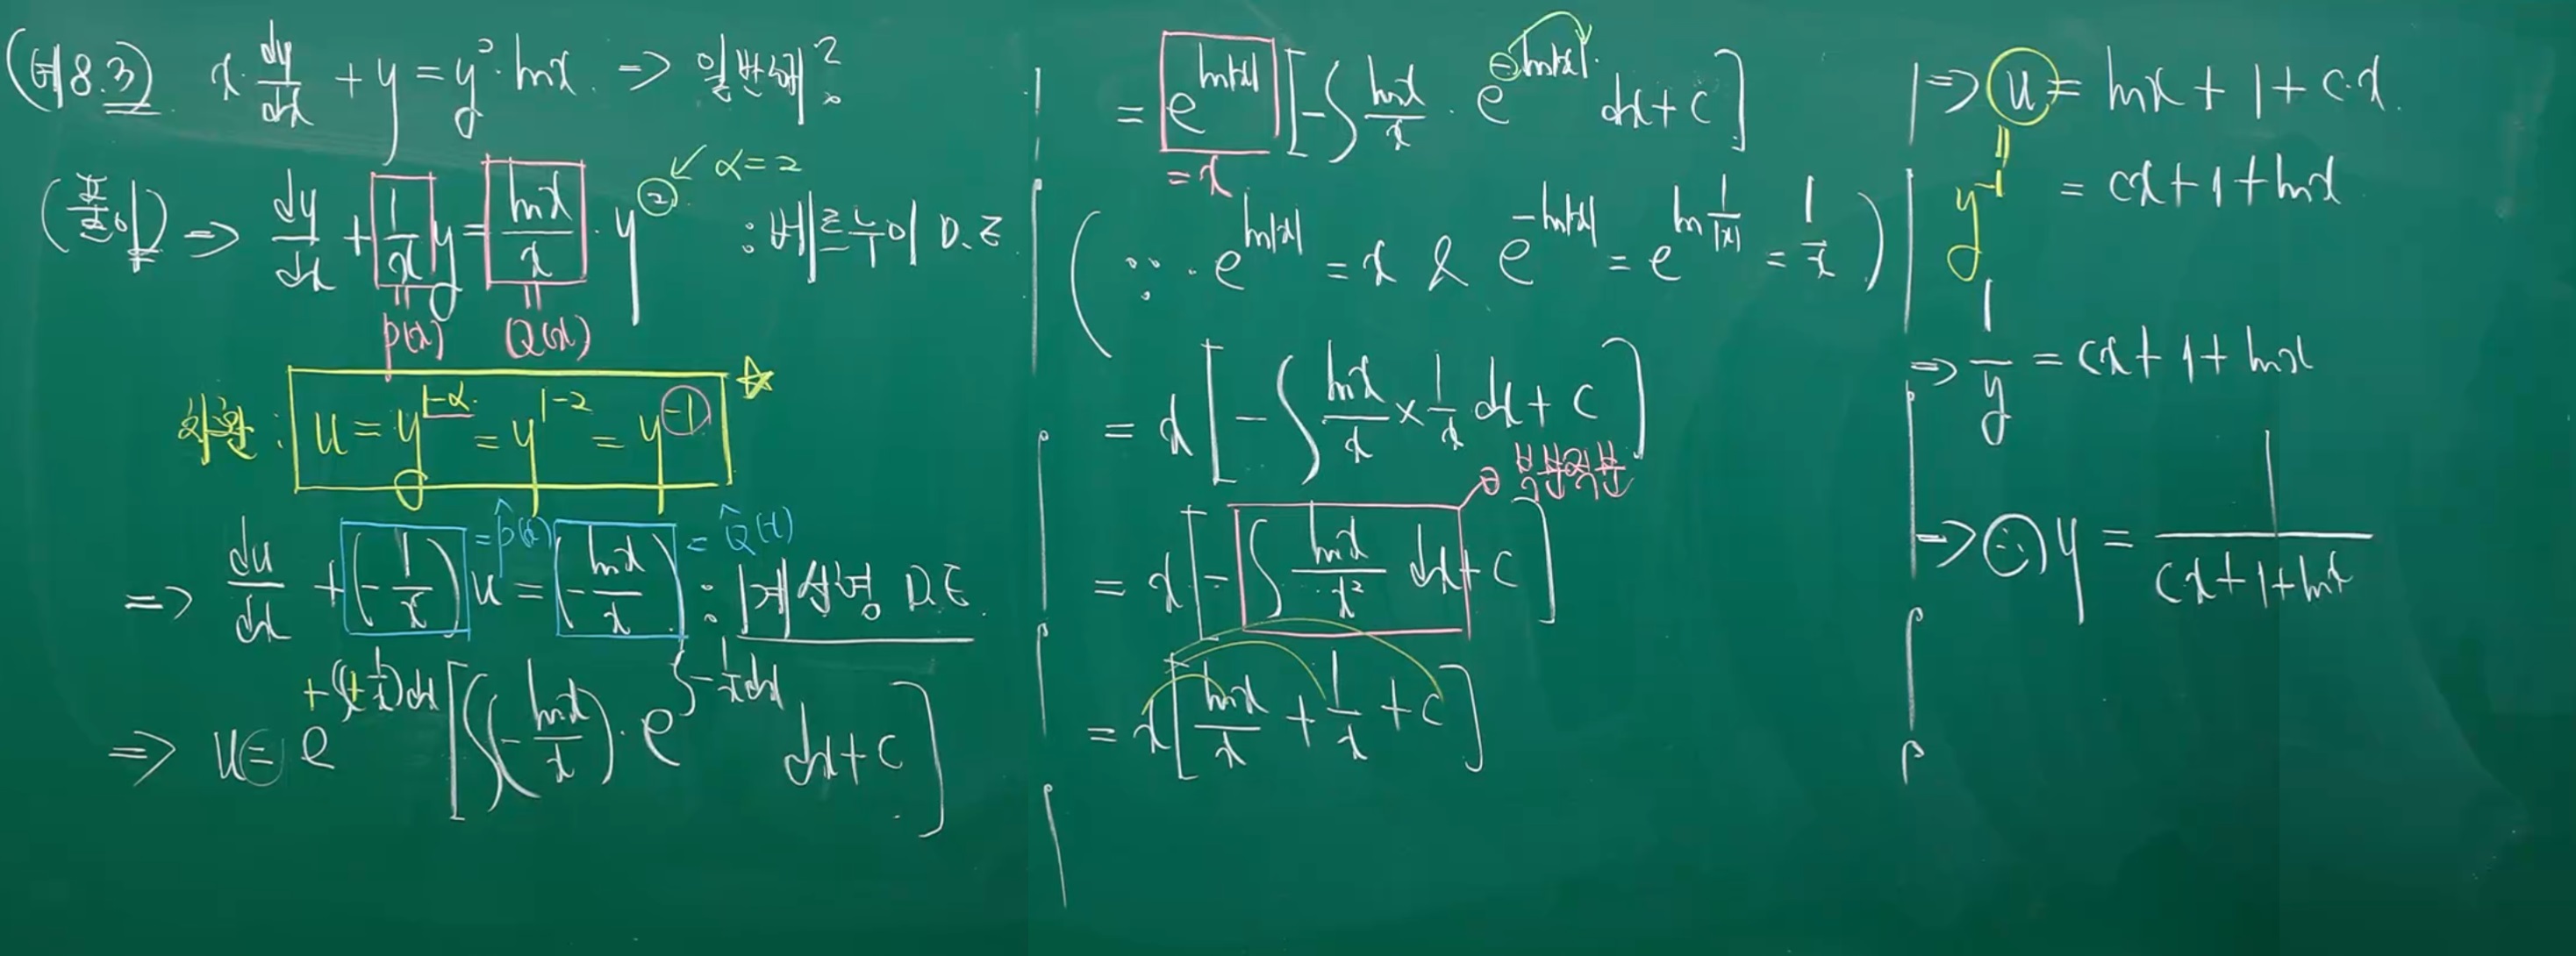 (예8.3) x·dy/dx + y = y²·lnx. → 일반해?
(풀이) ⇒ dy/dx + 1/x y = lnx/x · y² ↙ α=2 : 베르누이 D.E
p(x) Q(x)
치환 : u = y^(1-α) = y^(1-2) = y^(-1) ☆
⇒ du/dx + (-1/x) u = p̂(x) = (-lnx/x) = Q̂(x) : 1계 선형 D.E.
⇒ u = e^(+∫(+1/x)dx) [∫(-lnx/x)·e^(∫-1/x dx) dx + c]
= e^(ln|x|) [-∫ lnx/x · e^(-ln|x|) dx + c]
= x
(∵ e^(ln|x|) = x & e^(-ln|x|) = e^(ln 1/|x|) = 1/x)
= x [-∫ lnx/x × 1/x dx + c]
→ 부분적분
= x [-∫ lnx/x² dx + c]
= x [lnx/x + 1/x + c]
⇒ u = lnx + 1 + c·x.
y^(-1) = cx + 1 + lnx
⇒ 1/y = cx + 1 + lnx
⇒ ∴ y = 1/(cx + 1 + lnx)